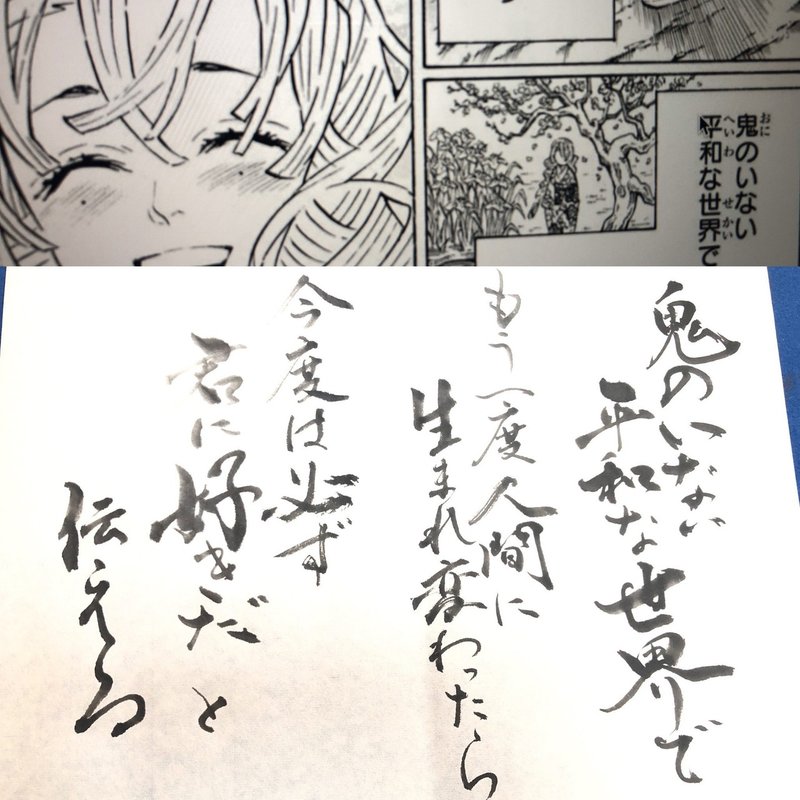 鬼のいない
平和な世界で
鬼のいない
平和な世界で
もう一度人間に
生まれ変わったら
今度は必ず
君に好きだと
伝える